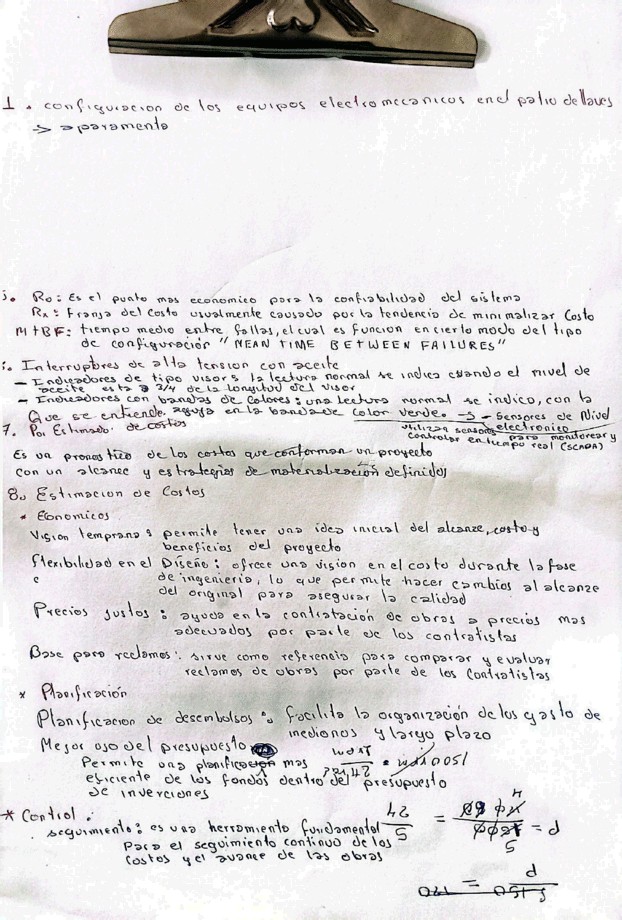 1. configuracion de los equipos electromecanicos en el patio de llaves
→ aparamenta
Ro: Es el punto mas economico para la confiabilidad del sistema
Rx: Franja del costo usualmente causado por la tendencia de minimalizar costo
MTBF: tiempo medio entre fallas, el cual es funcion en cierto modo del tipo
de configuración "MEAN TIME BETWEEN FAILURES"
Interruptores de alta tension con aceite
- Indicadores de tipo visor: la lectura normal se indica cuando el nivel de
aceite esta a 3/4 de la longitud del visor
- Indicadores con bandas de colores: una lectura normal se indico, con la
aguja en la banda de color verde. → - Sensores de Nivel
electronico
utilizan sensores para monitorear y
controlar en tiempo real (SCADA)
7. Que se entiende Por Estimado de costos
Es un pronostico de los costos que conforman un proyecto
con un alcance y estrategias de materialización definidos
8. Estimacion de Costos
* Economicos
Vision temprana: permite tener una idea inicial del alcanze, costo y
beneficios del proyecto
Flexibilidad en el Diseño: ofrece una vision en el costo durante la fase
de ingenieria, lo que permite hacer cambios al alcanze
del original para asegurar la calidad
Precios justos: ayuda en la contratación de obras a precios mas
adecuados por parte de los contratistas
Base para reclamos: sirve como referencia para comparar y evaluar
reclamos de obras por parte de los contratistas
* Planificación
Planificacion de desembolsos: facilita la organización de los gasto de
medianos y largo plazo
Mejor uso del presupuesto
Permite una planificación mas
eficiente de los fondos dentro del presupuesto
de inverciones
* Control:
seguimiento: es una herramiento fundamental
Para el seguimiento continuo de los
costos y el avance de las obras